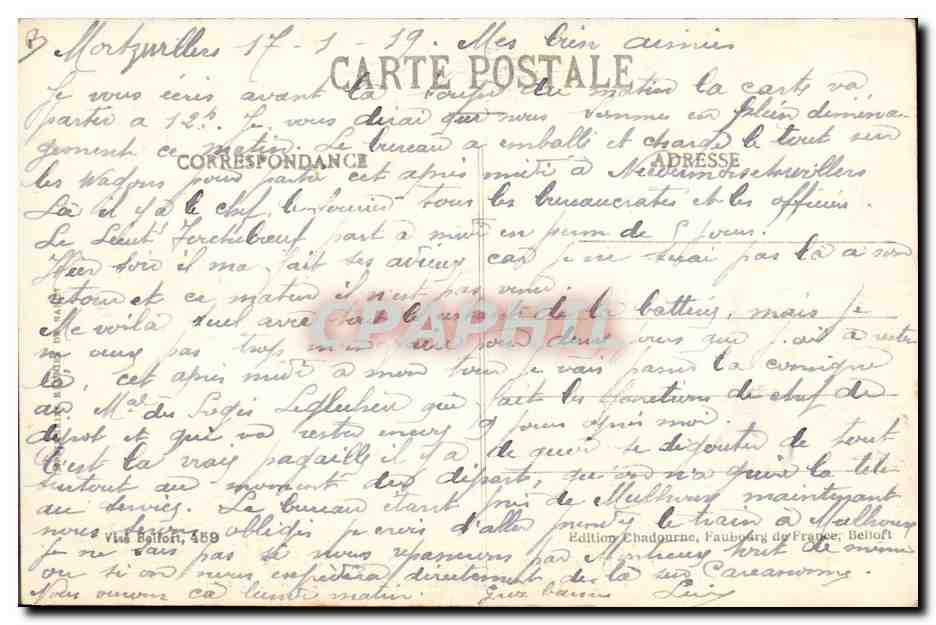 Mortzwillers 17-1-19. Mes bien aimés
CARTE POSTALE
Je vous écris avant la soupe du matin la carte va
partir à 12h. Je vous dirai que nous sommes en plein déména-
gement ce matin. Le bureau a emballé et chargé le tout sur
CORRESPONDANCE ADRESSE
les wagons pour partir cet après midi à
Là il y a le chef, le fourrier tous les bureaucrates et les officiers.
Le Lieut part à midi en perm de jours.
Hier soir il m'a fait ses adieux car je ne serai pas là à son
retour et ce matin il n'est pas venu.
Me voilà seul avec tout le restant de la batterie, mais je
m pas trop pour deux jours que j'ai à rester
là, cet après midi à mon tour je vais passer la consigne
au Mal des Logis qui fait les fonctions de chef de
dépot et qui va rester encore 9 jours après moi.
C'est la vraie pagaille il y a de quoi se dégouter de tout
surtout au moment du départ, qu'on n'a guère la tête
au service. Le bureau étant près de Mulhouse maintenant
nous serons obligés je crois d'aller prendre le train à Mulhouse
Visé Belfort, 459 Edition Chadourne, Faubourg de France, Belfort
je ne sais pas si nous repasserons par Montreux tout de même
ou si on nous expédiera directement de là sur Carcassonne.
Nous verrons ça lundi matin. Gros baisers
CPAPHIL